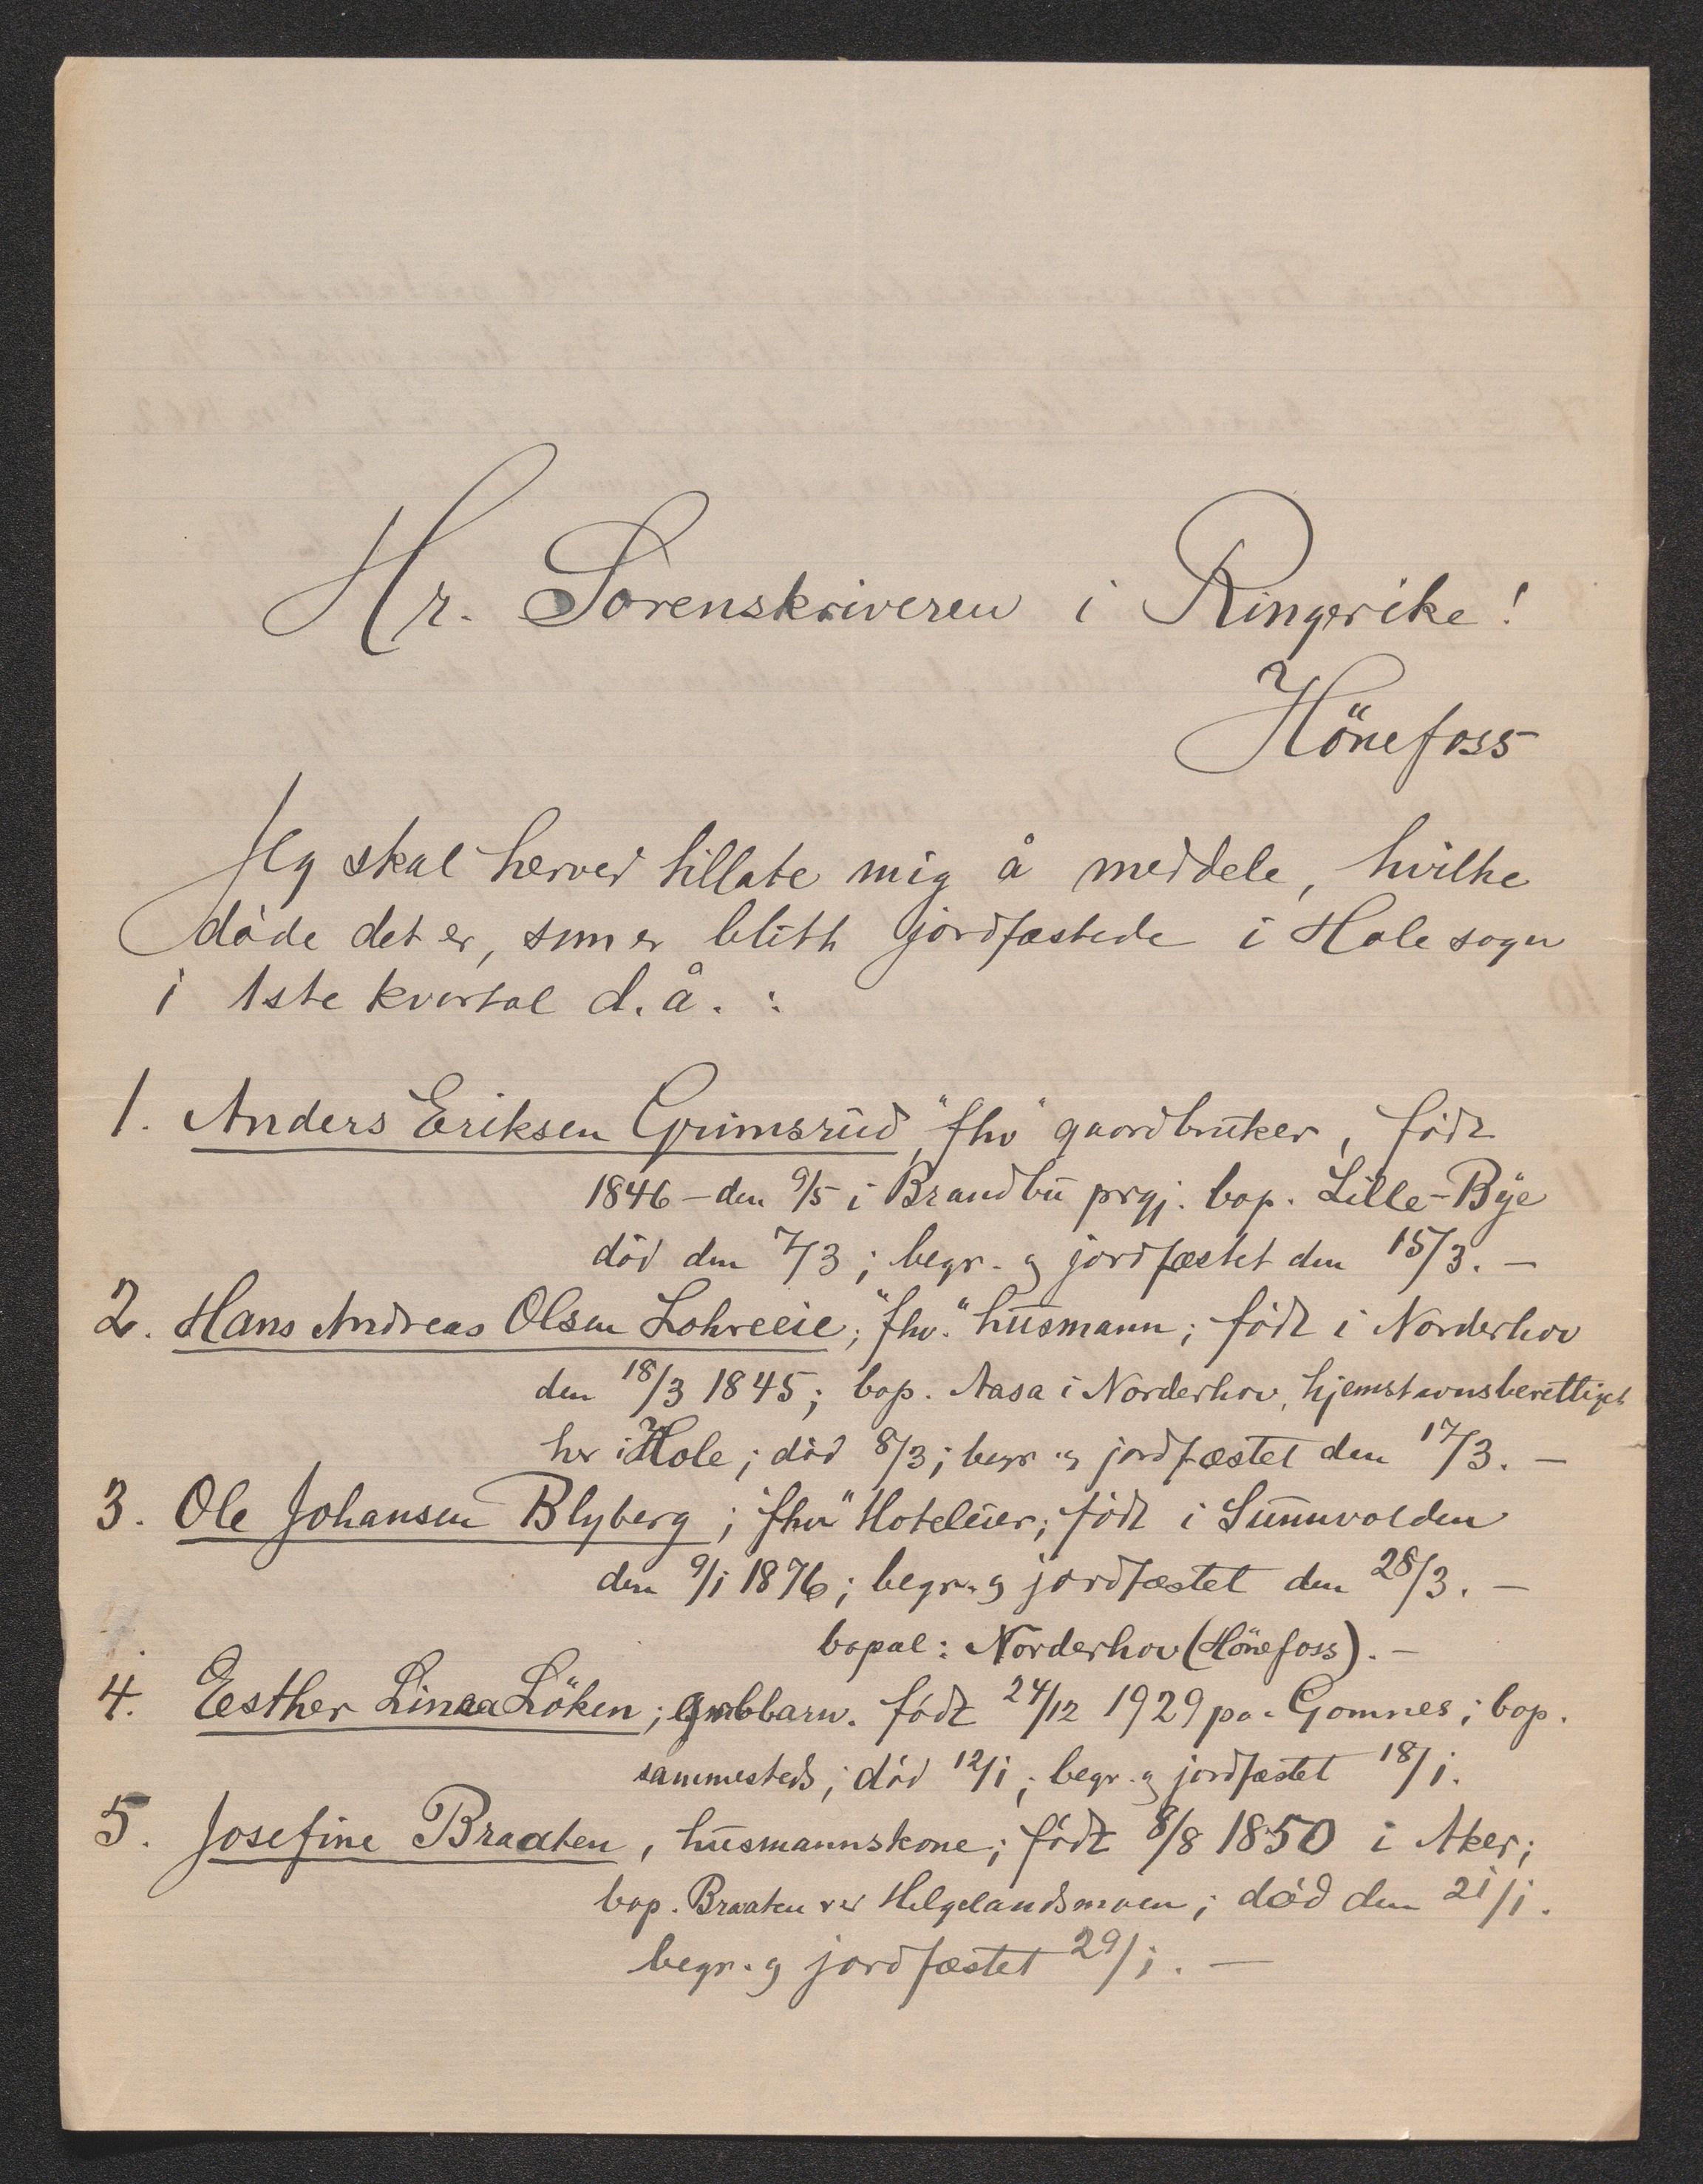 Hr. Sorenskriveren i Ringerike!
Hönefoss
Jeg skal herved tillate mig å meddele, hvilke
döde det er, som er blitt jordfæstede i Hole sogn
i 1ste kvartal d. å. :
1. Anders Eriksen Grimsrud, "fhv" gaardbruker, födt
1846 – den 9/5 i Brandbu prgj. bop. Lille-Bye
död den 7/3 ; begr. og jordfæstet den 15/3. –
2. Hans Andreas Olsen Lohreeie; "fhv." husmann; födt i Norderhov
den 18/3 1845; bop. Aasa i Norderhov, hjemstavnsberettiget
her i Hole; död 8/3; begr. og jordfæstet den 17/3. –
3. Ole Johansen Blyberg; "fhv" Hoteleier; födt i Sunnvolden
den 9/1 1876; begr. og jordfæstet den 28/3. –
bopæl: Norderhov (Hönefoss). –
4. Eesther Linea Löken; barn. födt 24/12 1929 på Gomnes; bop.
sammesteds; död 12/1; begr. og jordfæstet 18/1.
5. Josefine Braaten, husmannskone; födt 8/8 1850 i Aker;
bop. Braaten ved Helgelandsmoen; död den 21/1.
begr. og jordfæstet 29/1. –